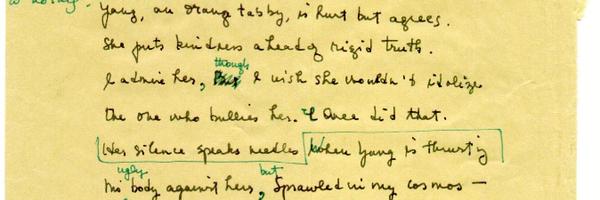 Yang, an orange tabby, is hurt but agrees.
She puts kindness ahead of rigid truth.
though
I admire her, But I wish she wouldn't idolize
the one who bullies her. I once did that.
Her silence speaks needles When Yang is thrusting
ugly but
his body against hers, Sprawled in my cosmos —